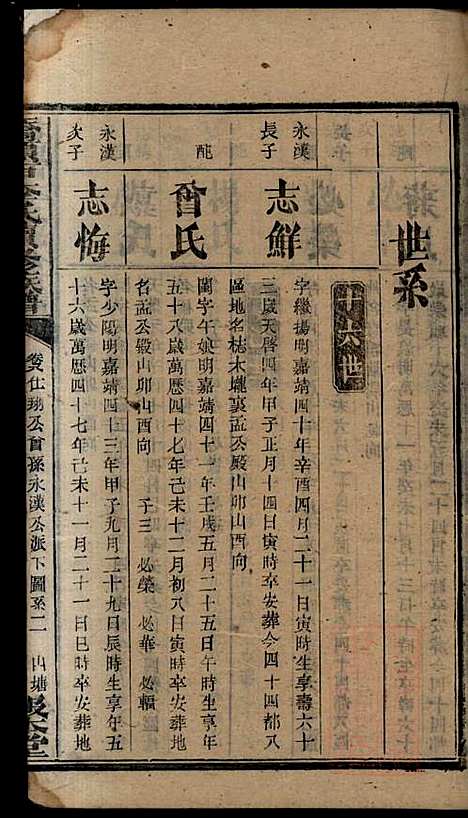 世系
六世
永漢長子
志鮮
字繼揚明嘉靖四十年辛酉四月二十一日寅時生享壽六十
三歲天啓四年甲子正月十四日寅時卒安葬今四十四都八
區地名梽木壠裏孟公殿山卯山酉向
配
曾氏
蘭字午娘明嘉靖四十一年壬戌五月二十五日午時生享年
五十八歲萬歷四十七年己未十二月初八日寅時卒安葬地
名孟公殿山卯山酉向 子三 必榮 必華 必輻
永漢次子
志悔
字少陽明嘉靖四十三年甲子九月二十九日辰時生享年五
十六歲萬歷四十七年己未十一月二十一日巳時卒安葬地
卷 仕翔公首孫永漢公派下圖系二 山塘 堂